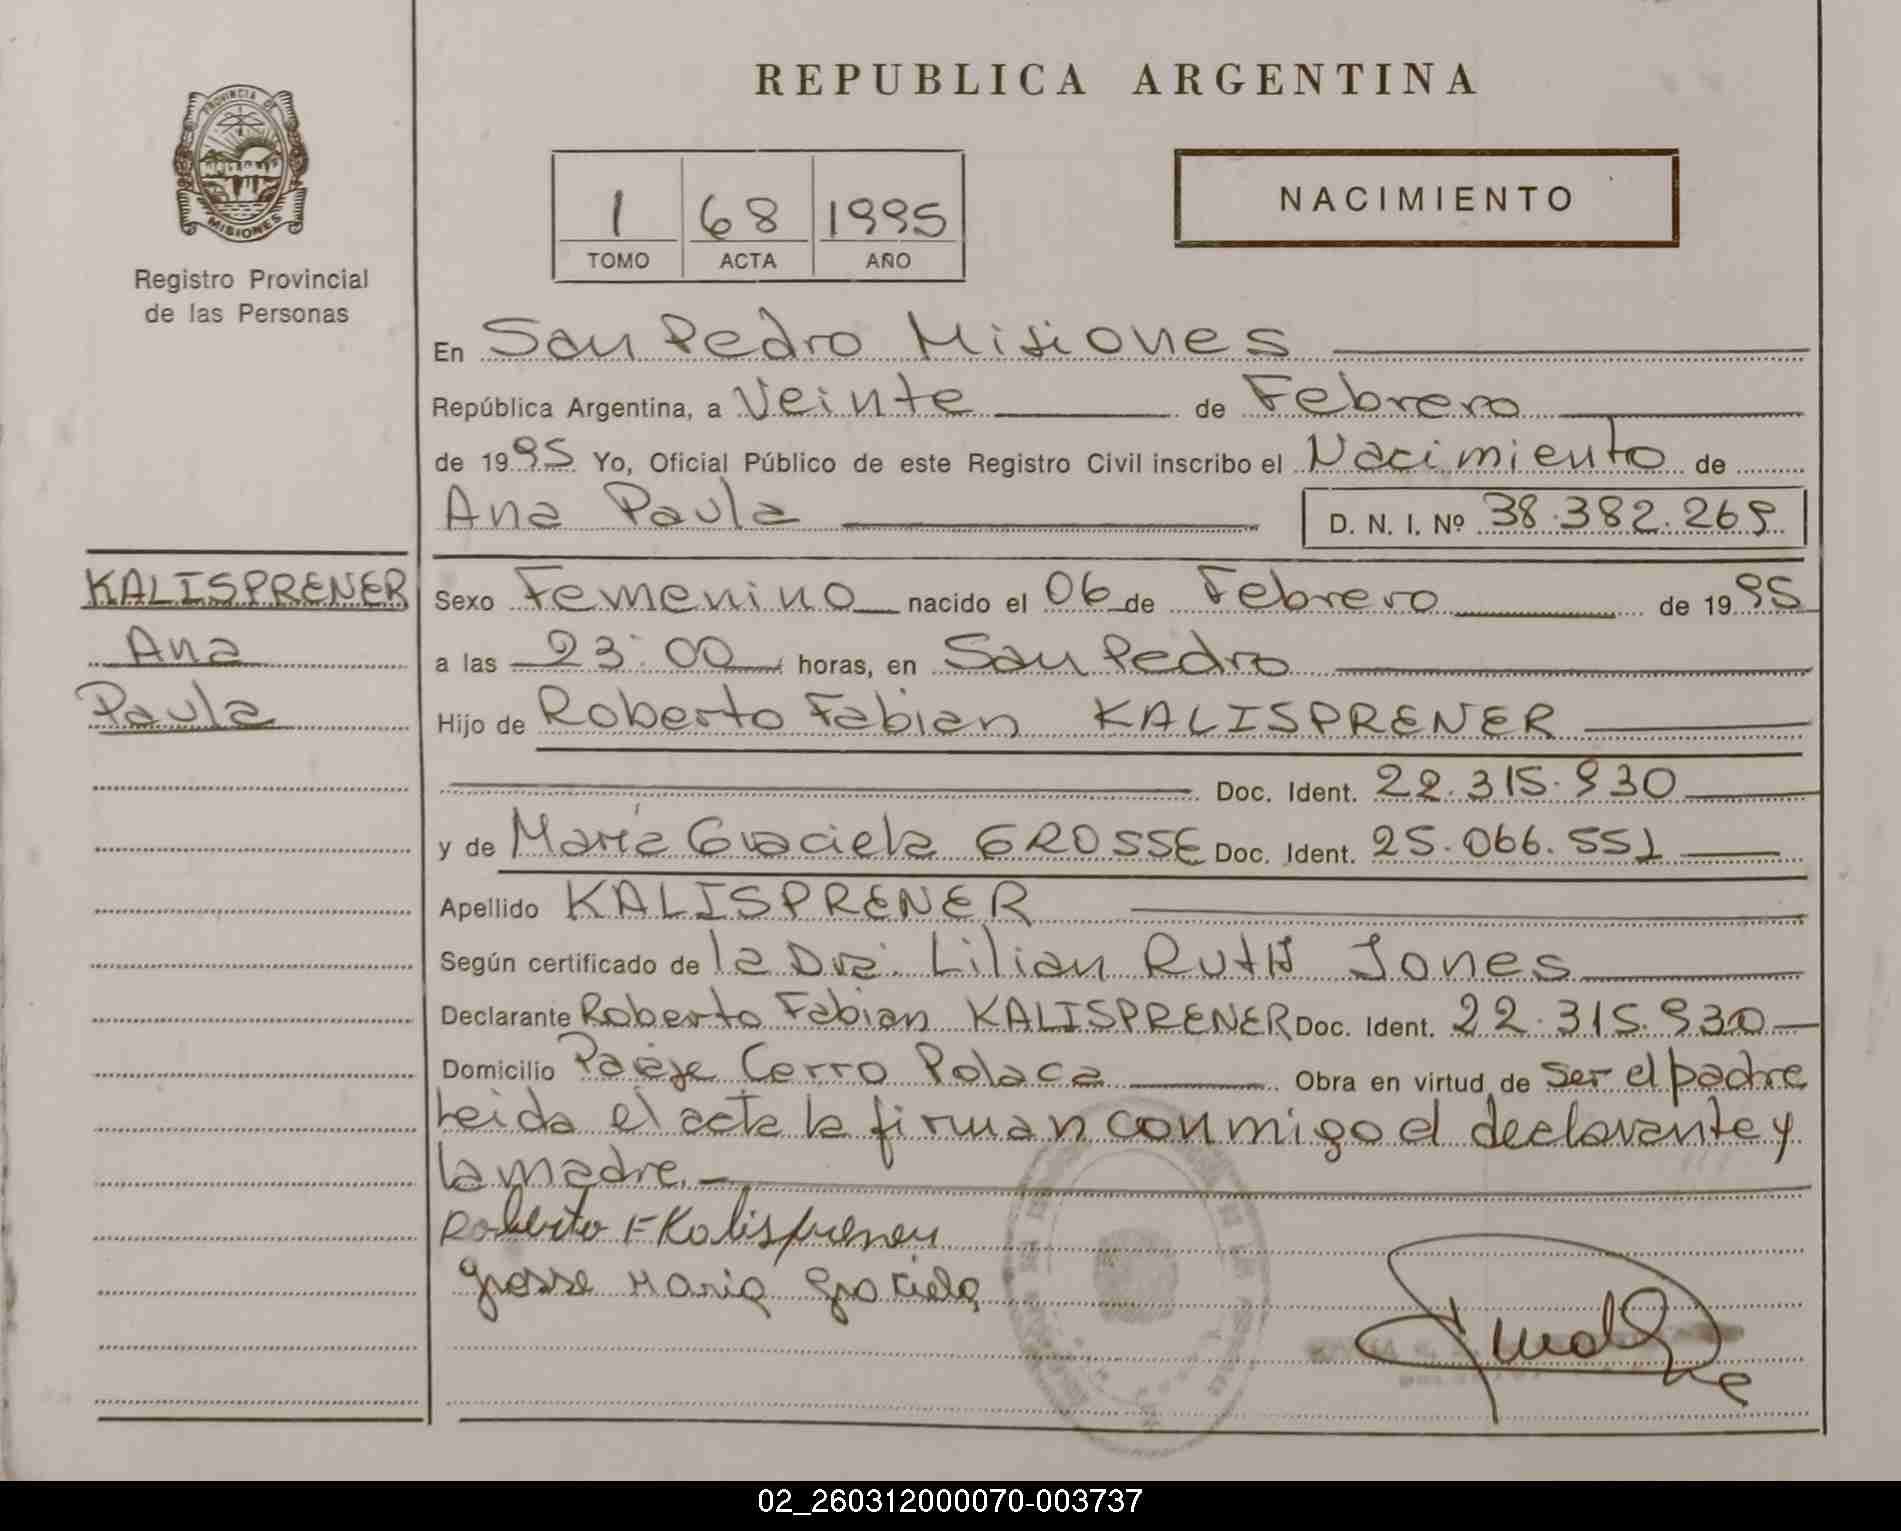 PROVINCIA DE
MISIONES
Registro Provincial
de las Personas
REPUBLICA ARGENTINA
1 68 1995
TOMO ACTA AÑO
NACIMIENTO
En San Pedro Misiones
República Argentina, a Veinte de Febrero
de 1995 Yo, Oficial Público de este Registro Civil inscribo el Nacimiento de
Ana Paula D. N. I. Nº 38.382.269
KALISPRENER
Ana
Paula
Sexo Femenino nacido el 06 de Febrero de 1995
a las 23:00 horas, en San Pedro
Hijo de Roberto Fabian KALISPRENER
Doc. Ident. 22.315.930
y de María Graciela GROSSE Doc. Ident. 25.066.551
Apellido KALISPRENER
Según certificado de la Dra. Lilian RutH Jones
Declarante Roberto Fabian KALISPRENER Doc. Ident. 22.315.930
Domicilio Paraje Cerro Polaca Obra en virtud de ser el padre
Leida el acta la firman conmigo el declarante y
la madre.
Roberto F Kalisprener
Grosse Maria Graciela
02_260312000070-003737